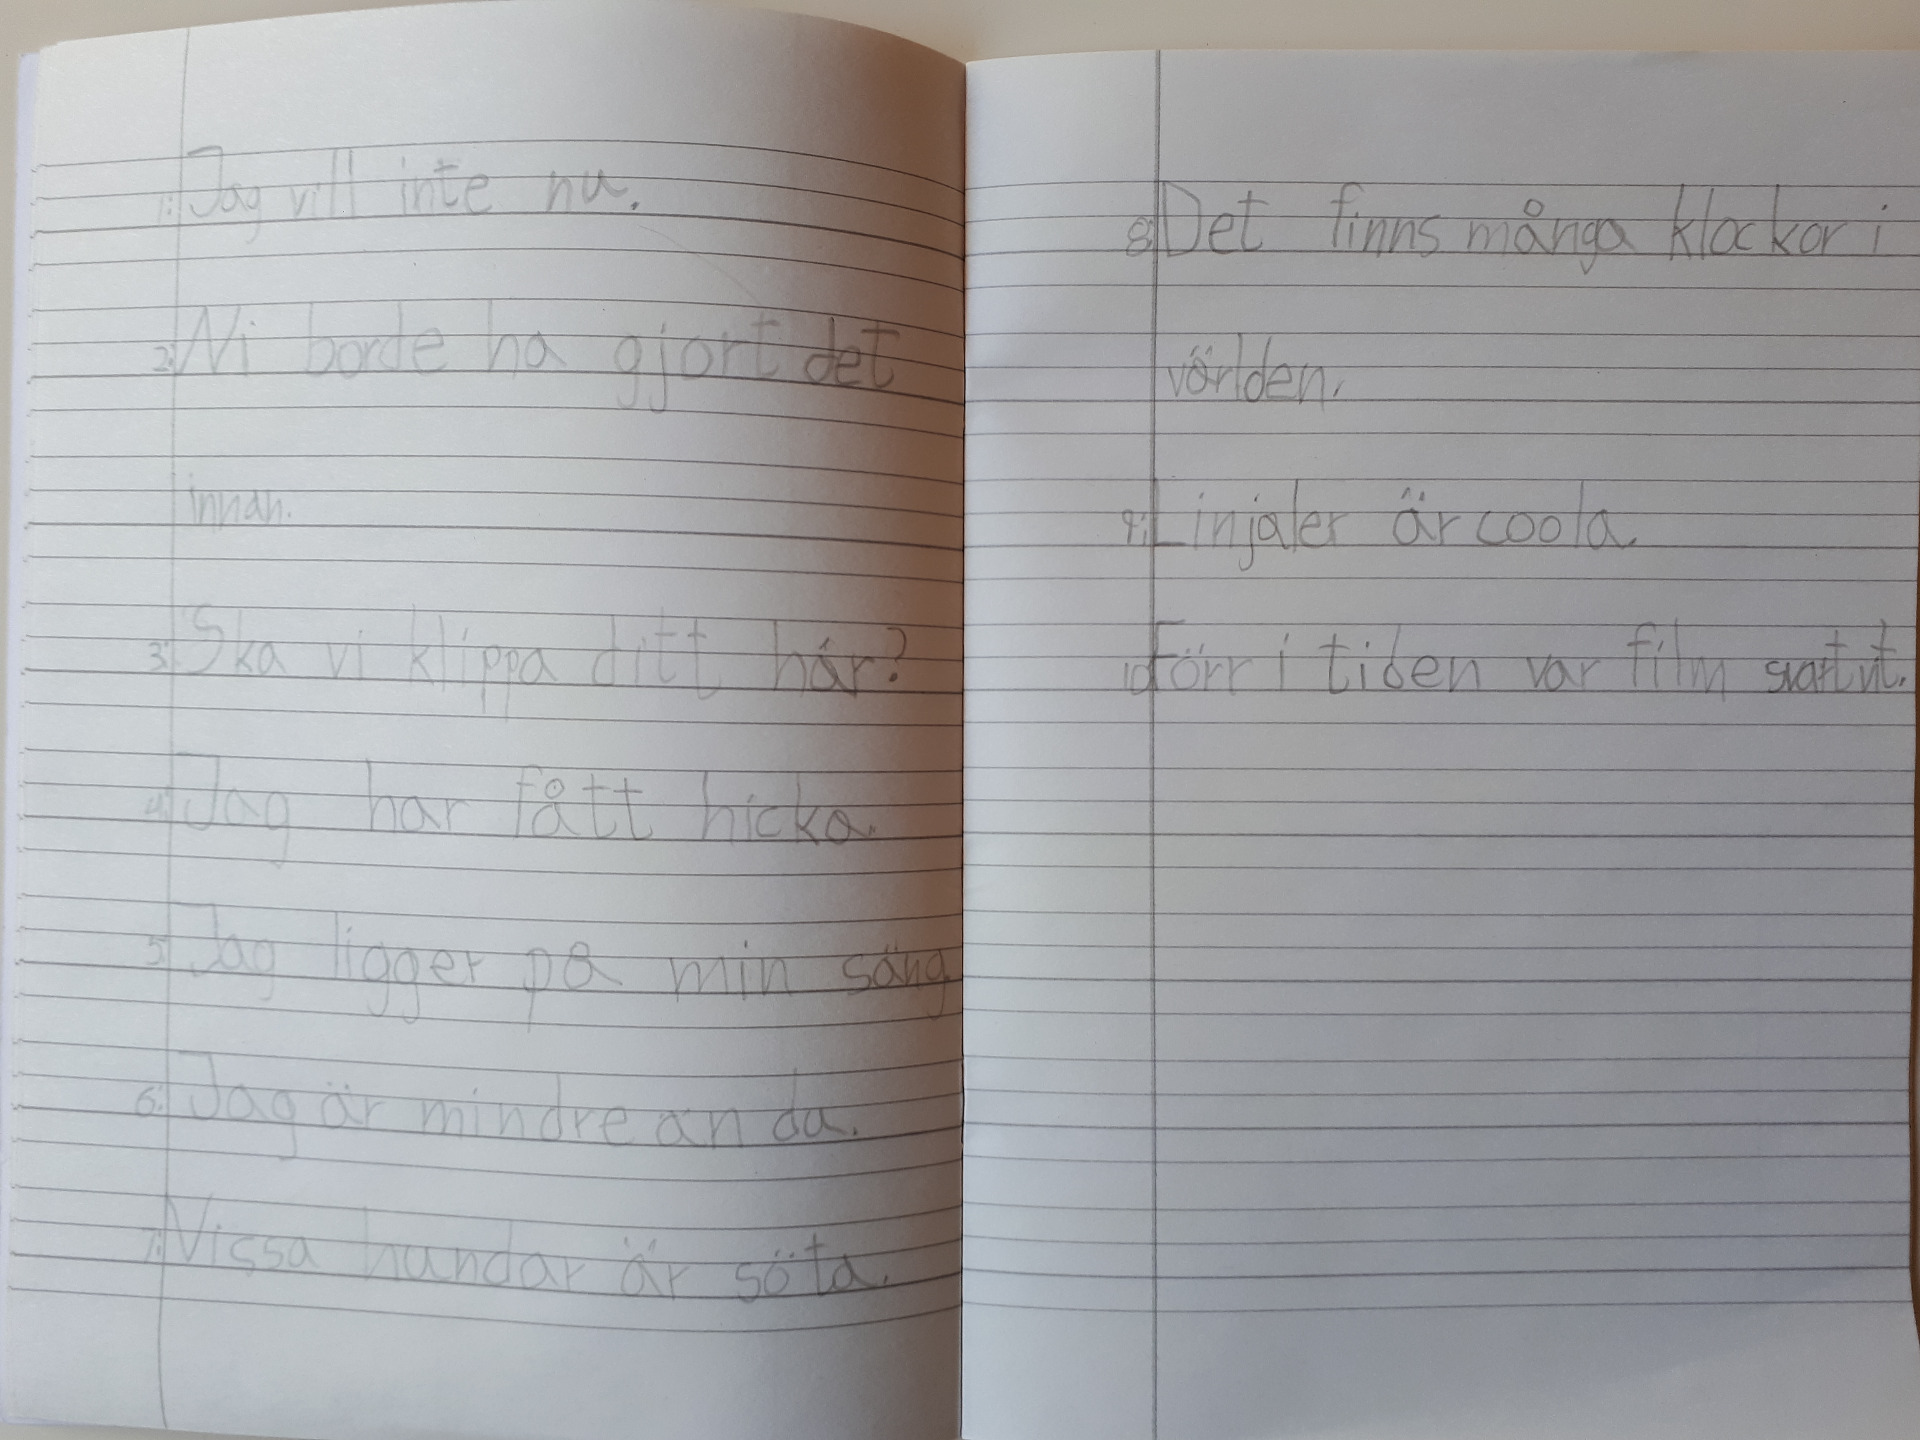 1. Jag vill inte nu.
2. Ni borde ha gjort det
innan.
3. Ska vi klippa ditt hår?
4. Jag har fått hicka.
5. Jag ligger på min säng
6. Jag är mindre än du.
7. Vissa hundar är söta.
8. Det finns många klockor i
världen.
9. Linjaler är coola.
10. Förr i tiden var film svartvit.